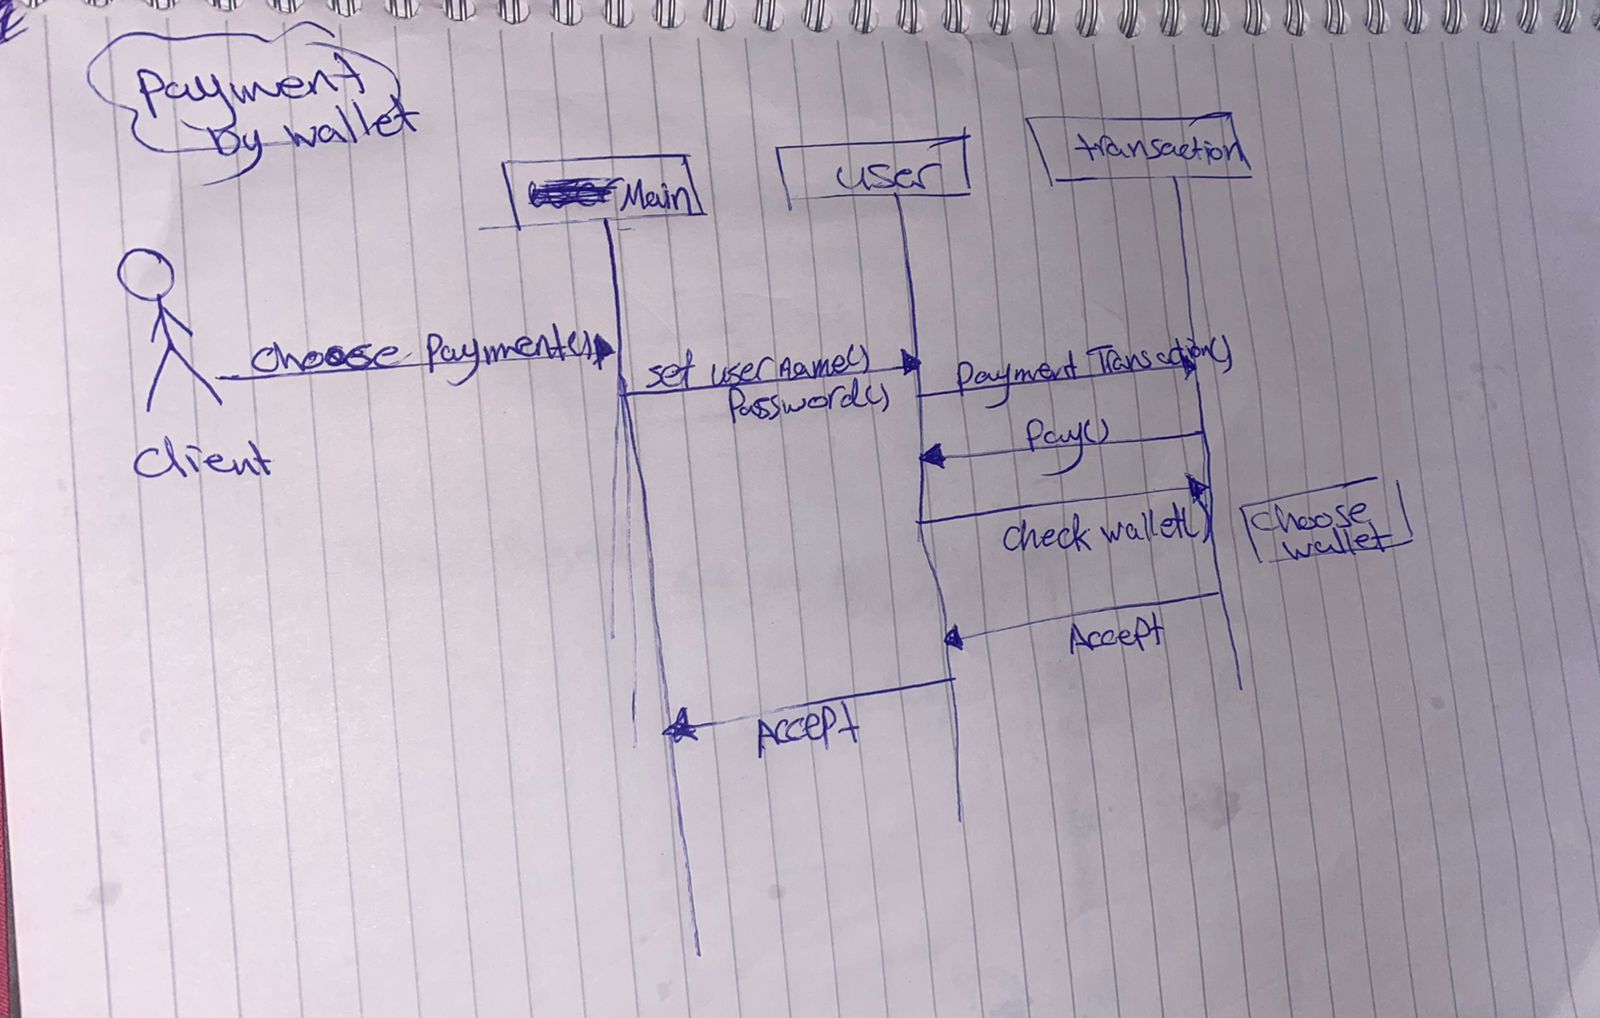 Payment
by wallet
Main
user
transaction
choose Payment()
set username()
Password()
Payment Transaction()
Pay()
check wallet()
choose
wallet
Accept
Accept
client